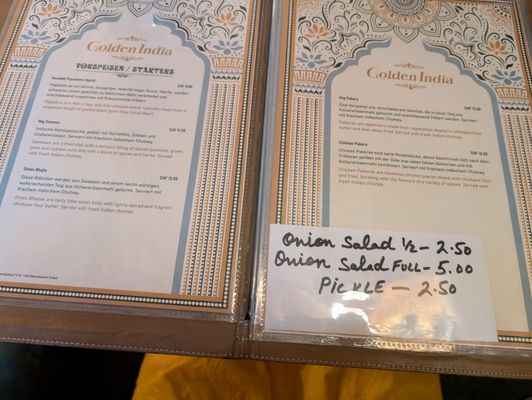 Golden India
VORSPEISEN / STARTERS
Roasted Papadams (3pcs)
CHF
Papadam ist ein
Veg Samosa
CHF
Indische Gemüsetasche, gefüllt mit Kartoffeln, Erbsen und
Cashewnüssen. Serviert mit frischem indischem Chutney
Samosas are a fried dish with a savoury filling of spiced potatoes, green
peas and cashew nuts and with a blend of spices and herbs. Served
with fresh Indian chutney
Onion Bhajia
CHF
Diese Bällchen werden aus Zwiebeln und einem leicht würzigen,
wohlriechenden Teig aus Kichererbsenmehl geformt. Serviert mit
frischem indischem Chutney
Onion Bhajias are tasty little onion balls with lightly spiced and fragrant
chickpea flour batter. Served with fresh Indian chutney
Golden India
Veg Pakora
CHF
Eine Vorspeise aus verschiedenem Gemüse, die in einen Teig aus
Kichererbsenmehl getaucht und anschliessend frittiert werden. Serviert
mit frischem indischem Chutney
Pakoras are appetizers made from vegetables dipped in chickpea flour
batter and then deep-fried. Served with fresh Indian chutney
Chicken Pakora
CHF
Chicken Pakoras sind zarte Pouletstücke, deren Geschmack sich nach dem
Frittieren perfekt mit der Süsse von vielen feinen Gewürzen und mit
Kichererbsenmehl kombinieren. Serviert mit frischem indischem Chutney
Chicken Pakoras are boneless chicken pieces mixed with chickpea flour
and fried, bursting with the flavours of a variety of spices. Served with
fresh Indian chutney
Onion Salad ½ – 2.50
Onion Salad FULL – 5.00
PicKLE – 2.50